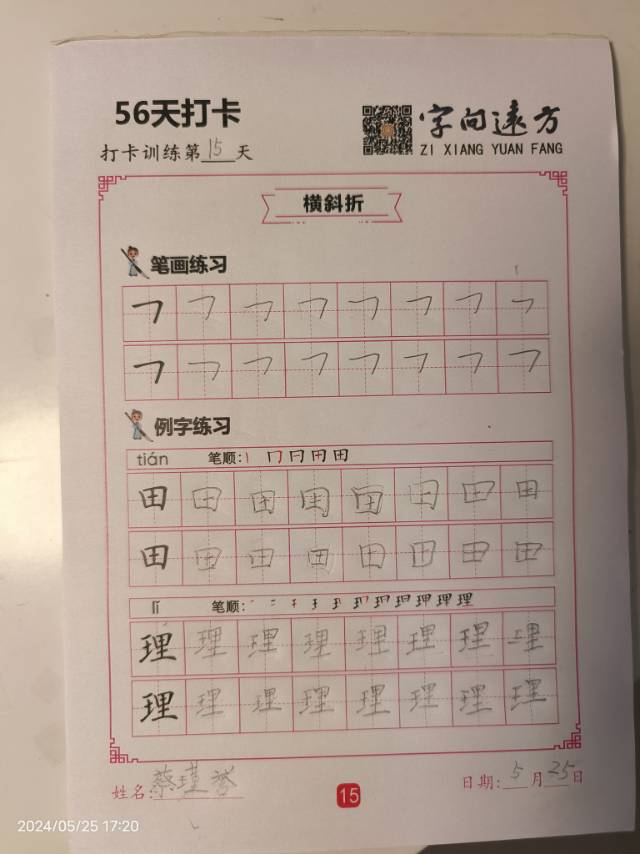 56天打卡
字向远方
打卡训练第15天
ZI XIANG YUAN FANG
横斜折
笔画练习
㇇ ㇇ ㇇ ㇇ ㇇ ㇇ ㇇ ㇇
㇇ ㇇ ㇇ ㇇ ㇇ ㇇ ㇇ ㇇
例字练习
tián 笔顺: 丨 冂 日 田 田
田 田 田 田 田 田 田 田
田 田 田 田 田 田 田 田
lǐ 笔顺:
理 理 理 理 理 理 理 理
理 理 理 理 理 理 理 理
姓名: 蔡瑾
15
日期: 5月25日
2024/05/25 17:20